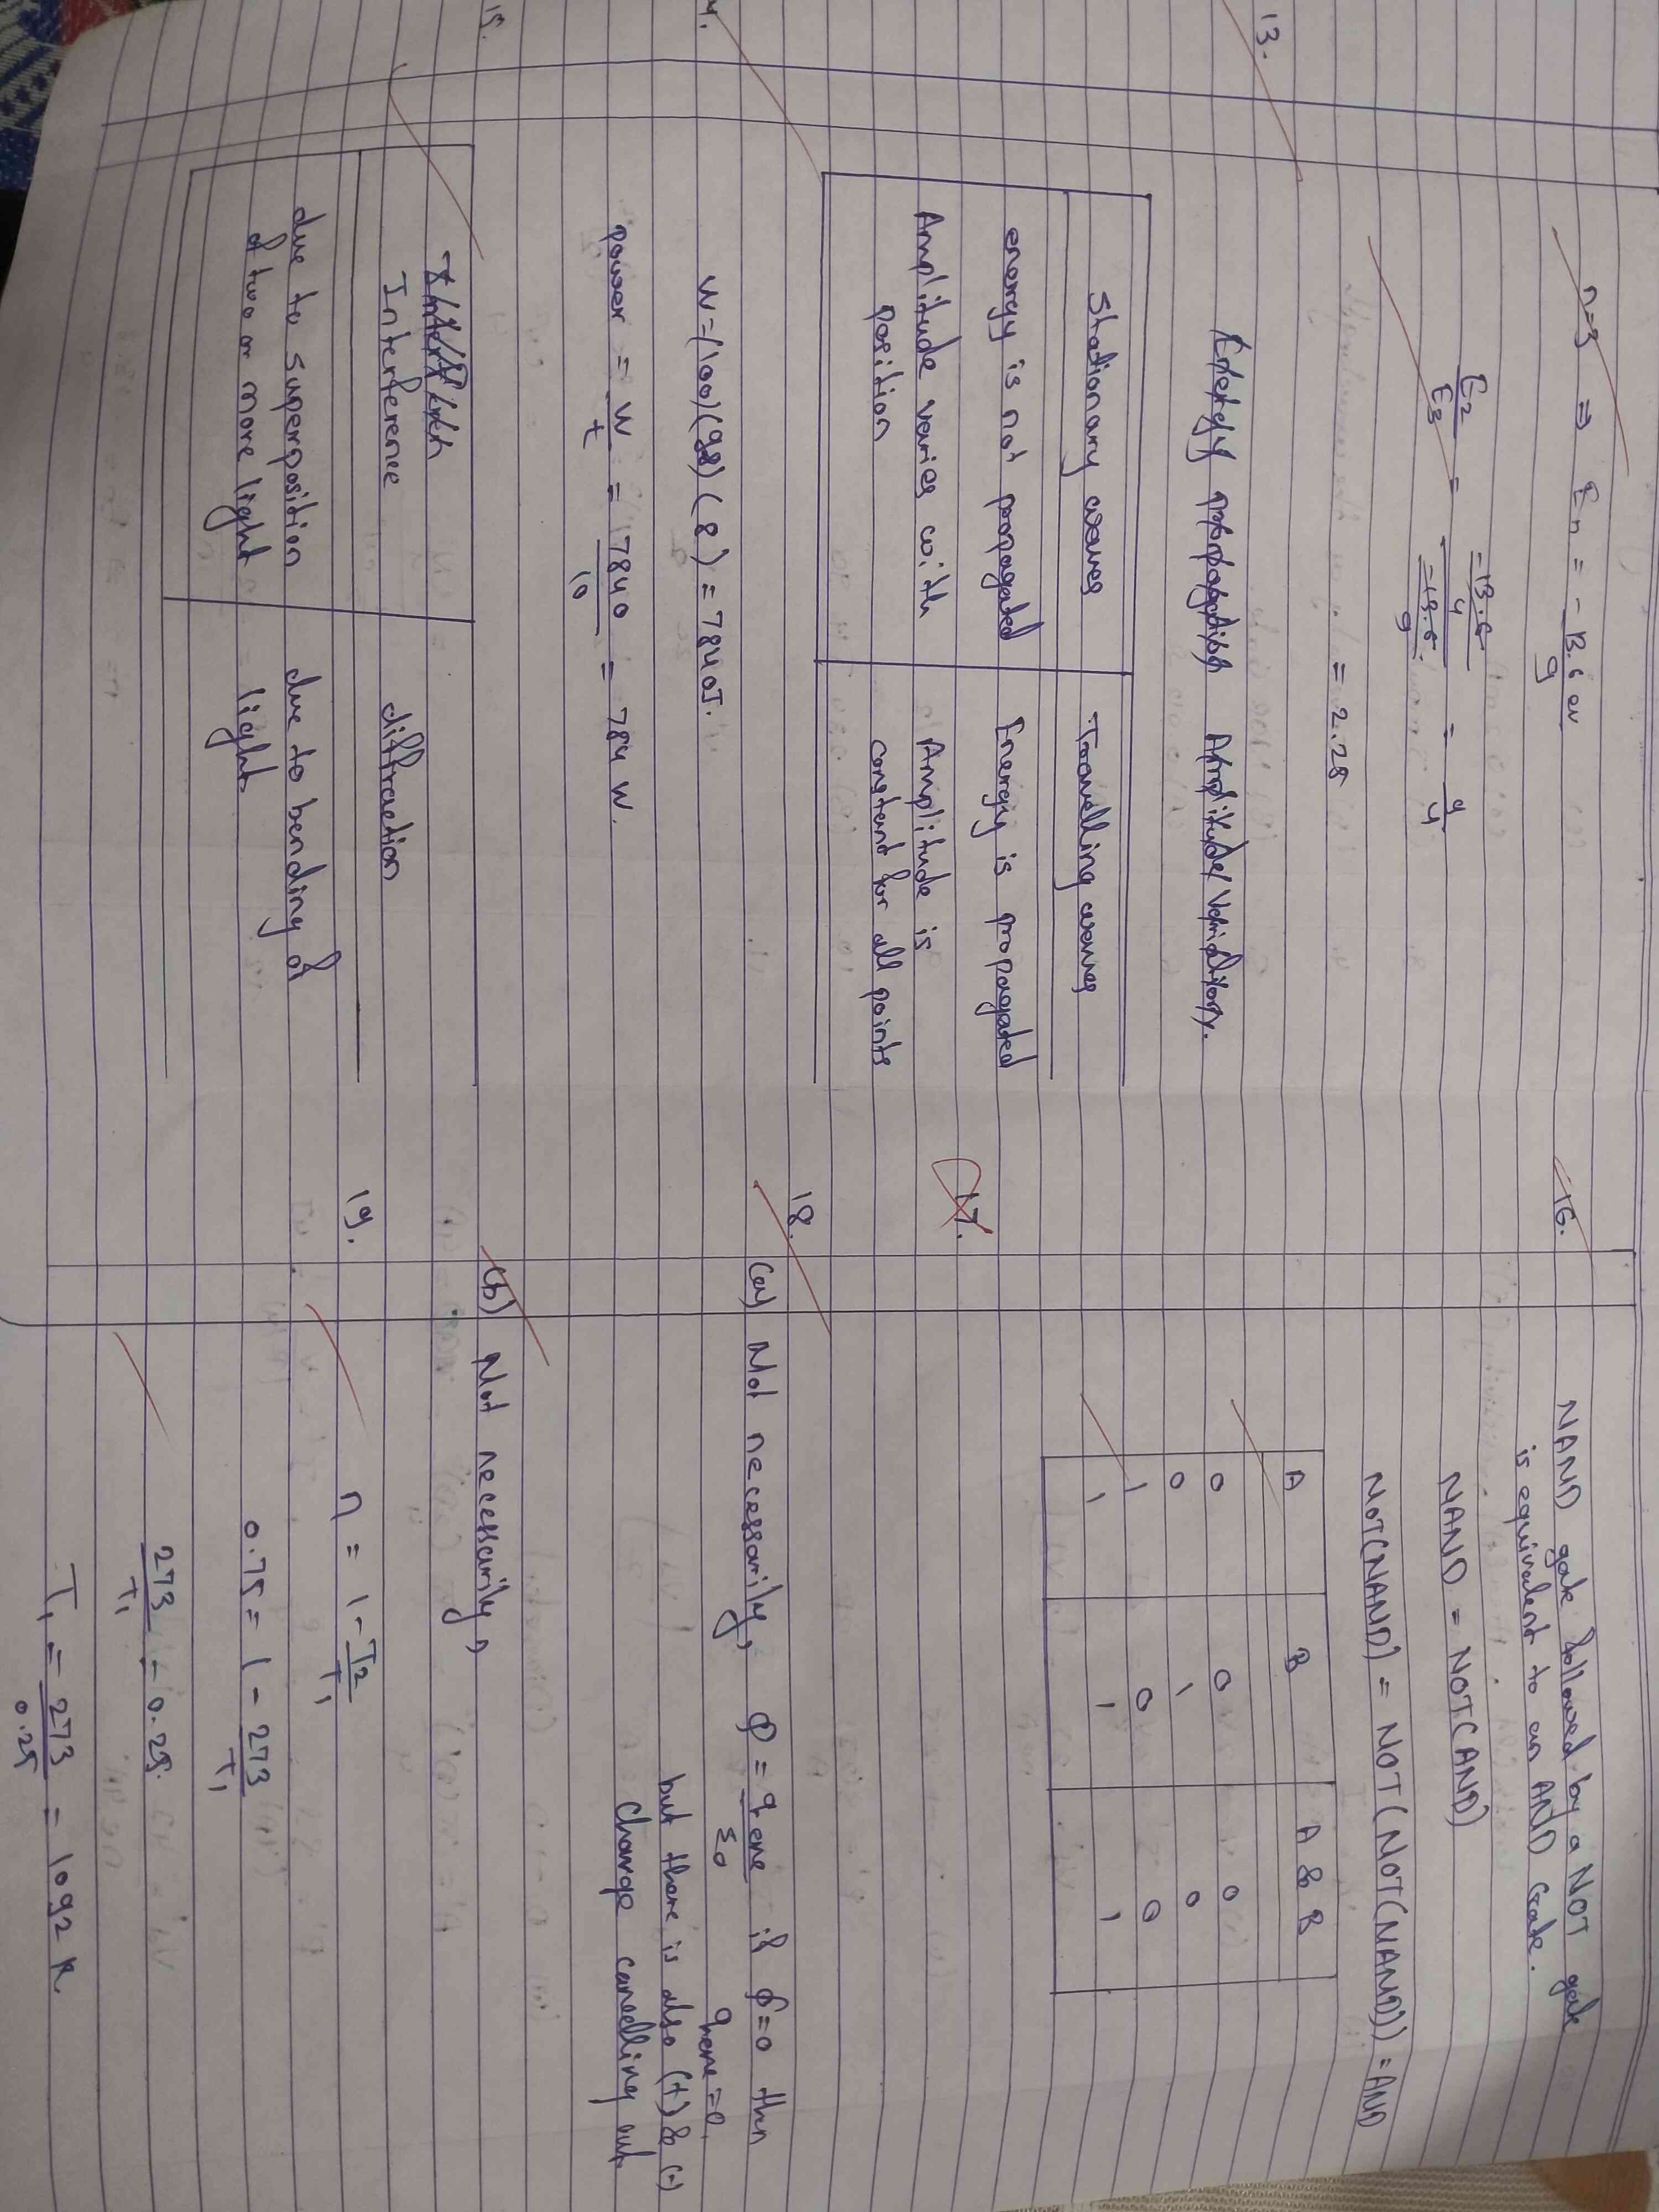 n=3 ⇒ En = -13.6 ev
9
E2 = -13.6 = 9
4
E3 -13.6 4
9
= 2.25
13. Energy propagation Amplitude Variations.
Stationary waves Travelling waves
energy is not propagated Energy is propagated
Amplitude varies with Amplitude is
position constant for all points
14. W=(100)(98)(8)=7840J.
power = W = 7840 = 784 W.
t 10
15.
Interference diffraction
due to superposition due to bending of
of two or more light light
16. NAND gate followed by a NOT gate
is equivalent to an AND Gate.
NAND = NOT(AND)
NOT(NAND) = NOT(NOT(NAND)) = AND
A B A & B
0 0 0
0 1 0
1 0 0
1 1 1
17.
18.
(a) Not necessarily, φ = qenc if φ=0 then
ε0 qenc=0.
but there is also (+) & (-)
charge cancelling out
(b) Not necessarily,
19. η = 1 - T2
T1
0.75 = 1 - 273
T1
273 = 0.25
T1
T1 = 273 = 1092 K
0.25